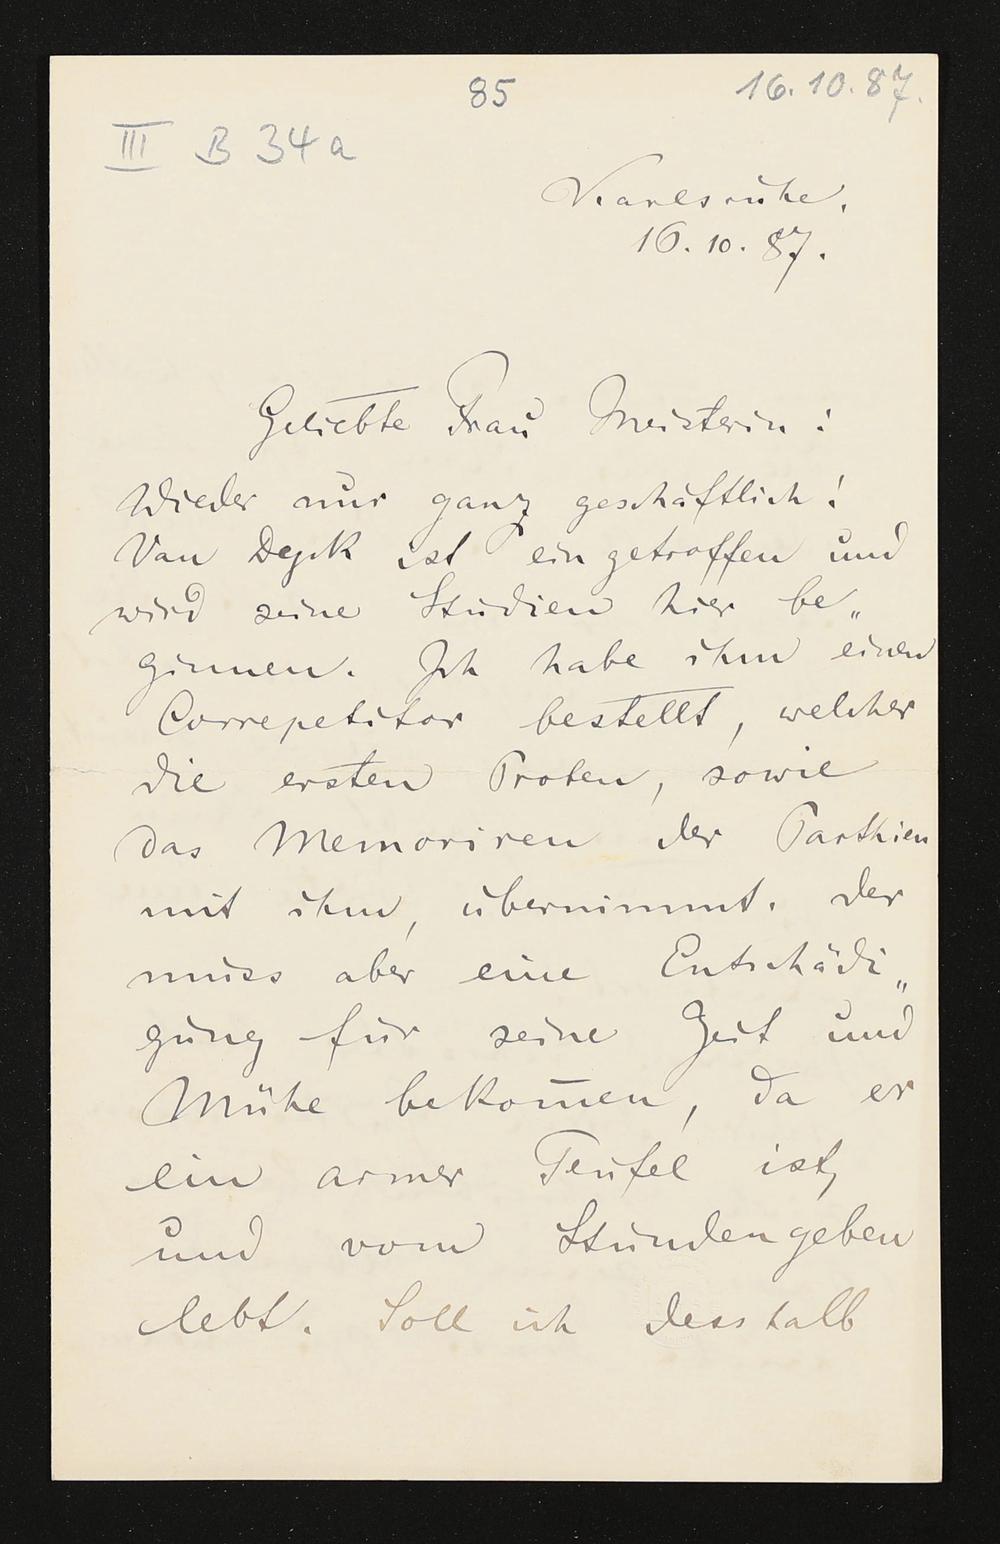 85
16.10.87.
III B 34a
Karlsruhe.
16.10.87.
Geliebte Frau Meisterin!
Wieder nur ganz geschäftlich!
Van Dyck ist eingetroffen und
wird seine Studien hier be„
ginnen. Ich habe ihm einen
Correpetitor bestellt, welcher
die ersten Proben, sowie
das Memoriren der Parthien
mit ihm, übernimmt. Der
muss aber eine Entschädi„
gung für seine Zeit und
Mühe bekom̅en, da er
ein armer Teufel ist,
und vom Stundengeben
lebt. Soll ich desshalb